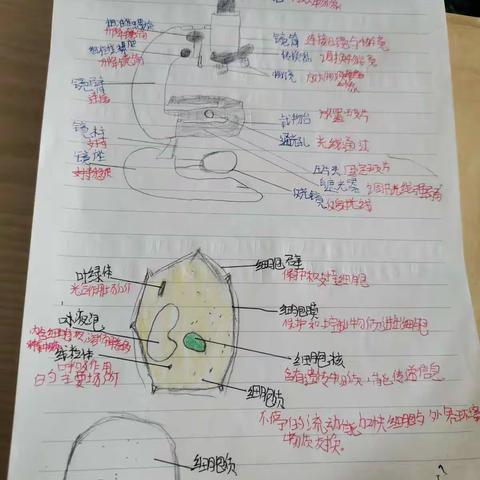 镜筒 连接目镜与物镜
转换器 调换物镜
物镜 放大物体
升降镜筒
升降镜筒
镜臂
连接
载物台 放置玻片
镜柱
支持
通光孔 光线通过
镜座
支持稳定
压片夹 固定玻片
遮光器 调节光线强弱
反光镜 反射光线
细胞壁
保护和支撑细胞
叶绿体
光合作用场所
细胞膜
保护和控制物质进出细胞
液泡
线粒体
呼吸作用
的主要场所
细胞核
含有遗传物质,能传递信息
细胞质
不停的流动能加快细胞与外界环境
物质交换。
细胞质